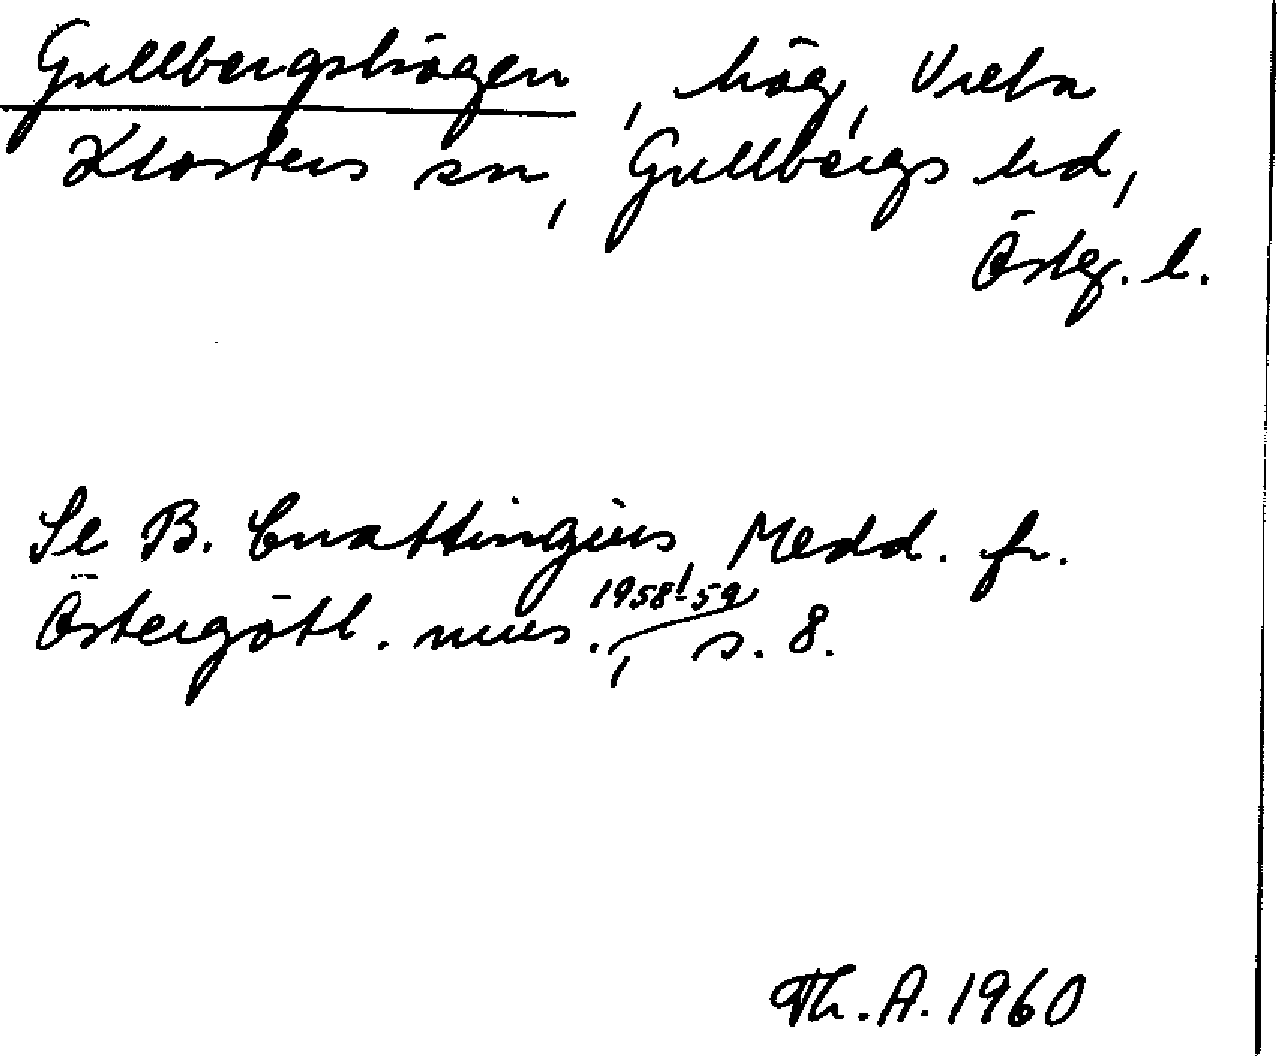 Gullbergshögen, hög, Vreta
Klosters sn, Gullbergs hd,
Österg. l.
Se B. Cnattingius, Medd. fr.
Östergötl. mus. 1958-59, s. 8.
Th. A. 1960